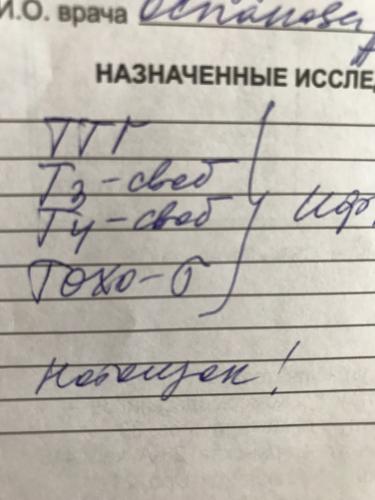 И.О. врача Оспанова
НАЗНАЧЕННЫЕ ИССЛЕ
ТТГ
Т3 - своб
Т4 - своб
натощак!